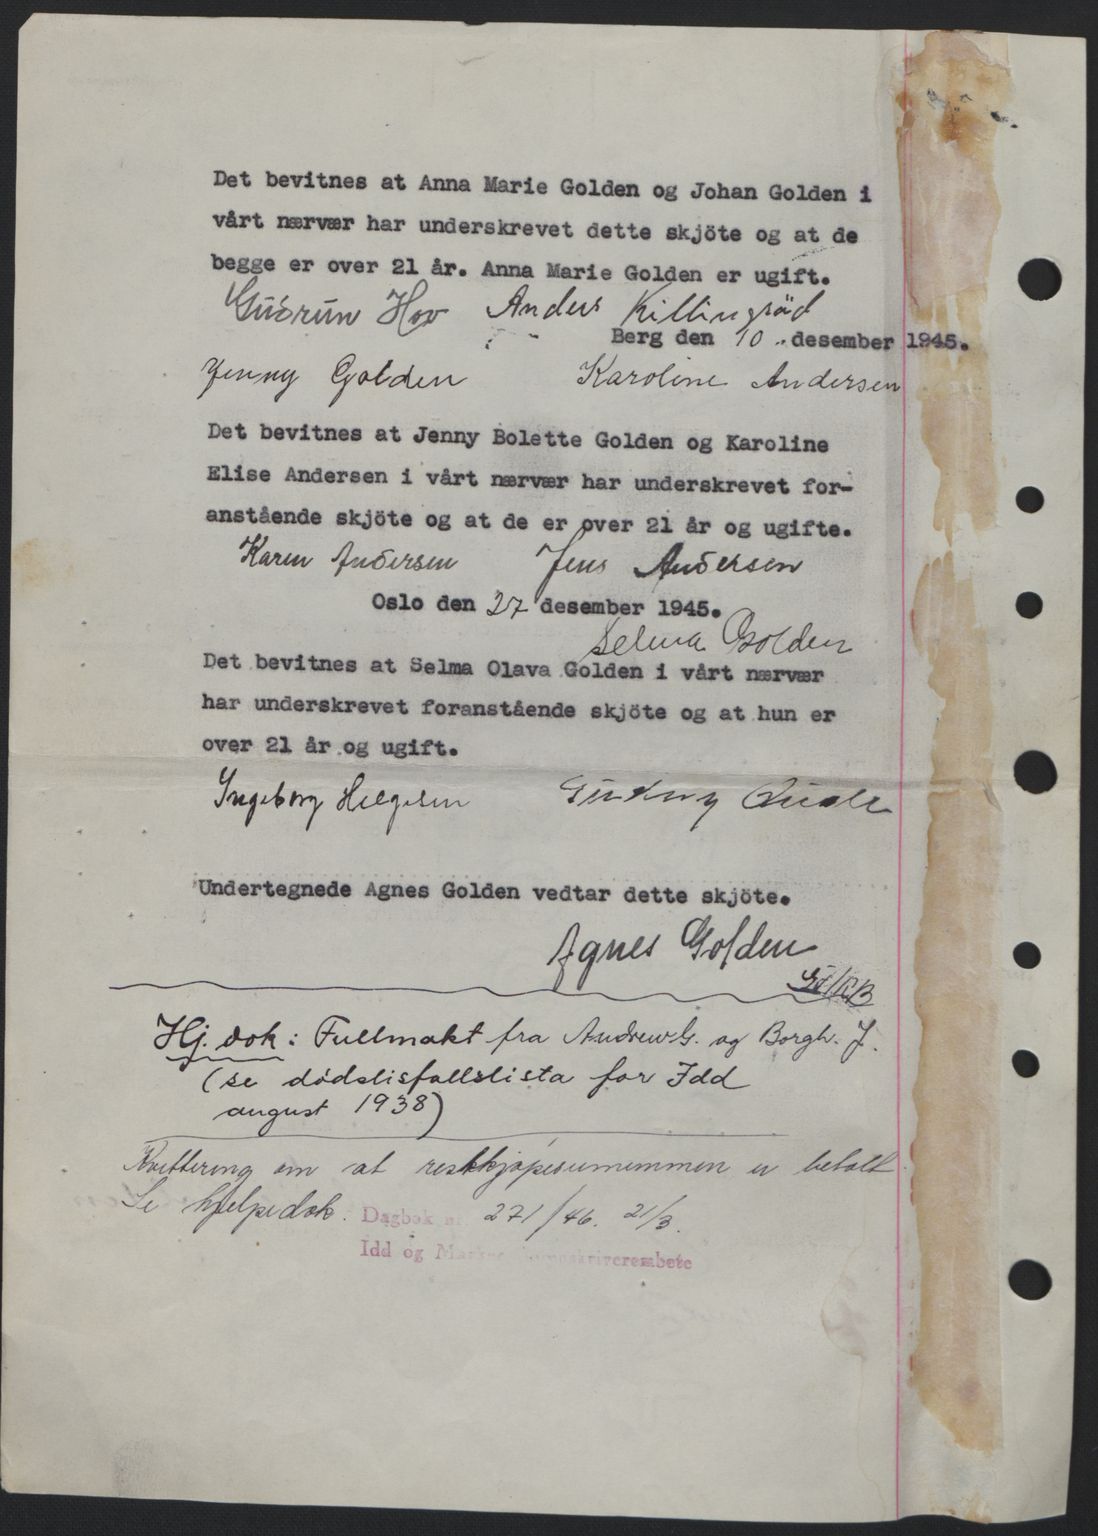 Det bevitnes at Anna Marie Golden og Johan Golden i
vårt nærvær har underskrevet dette skjöte og at de
begge er over 21 år. Anna Marie Golden er ugift.
Gudrun Hov Anders Killingröd
Berg den 10 desember 1945.
Jenny Golden Karoline Andersen
Det bevitnes at Jenny Bolette Golden og Karoline
Elise Andersen i vårt nærvær har underskrevet for-
anstående skjöte og at de er over 21 år og ugifte.
Karen Andersen Jens Andersen
Oslo den 27 desember 1945.
Selma Golden
Det bevitnes at Selma Olava Golden i vårt nærvær
har underskrevet foranstående skjöte og at hun er
over 21 år og ugift.
Ingeborg Helgesen Gudny
Undertegnede Agnes Golden vedtar dette skjöte.
Agnes Golden
Hj. dok: Fullmakt fra Andrew G. og Borgh. J.
(se dödslisfallslista for Idd
august 1938)
Kvittering om at restkjøpesummen er betalt.
Se hjelpedok.
Dagbok nr. 271/46. 21/3.
Idd og Marker sorenskriverembete